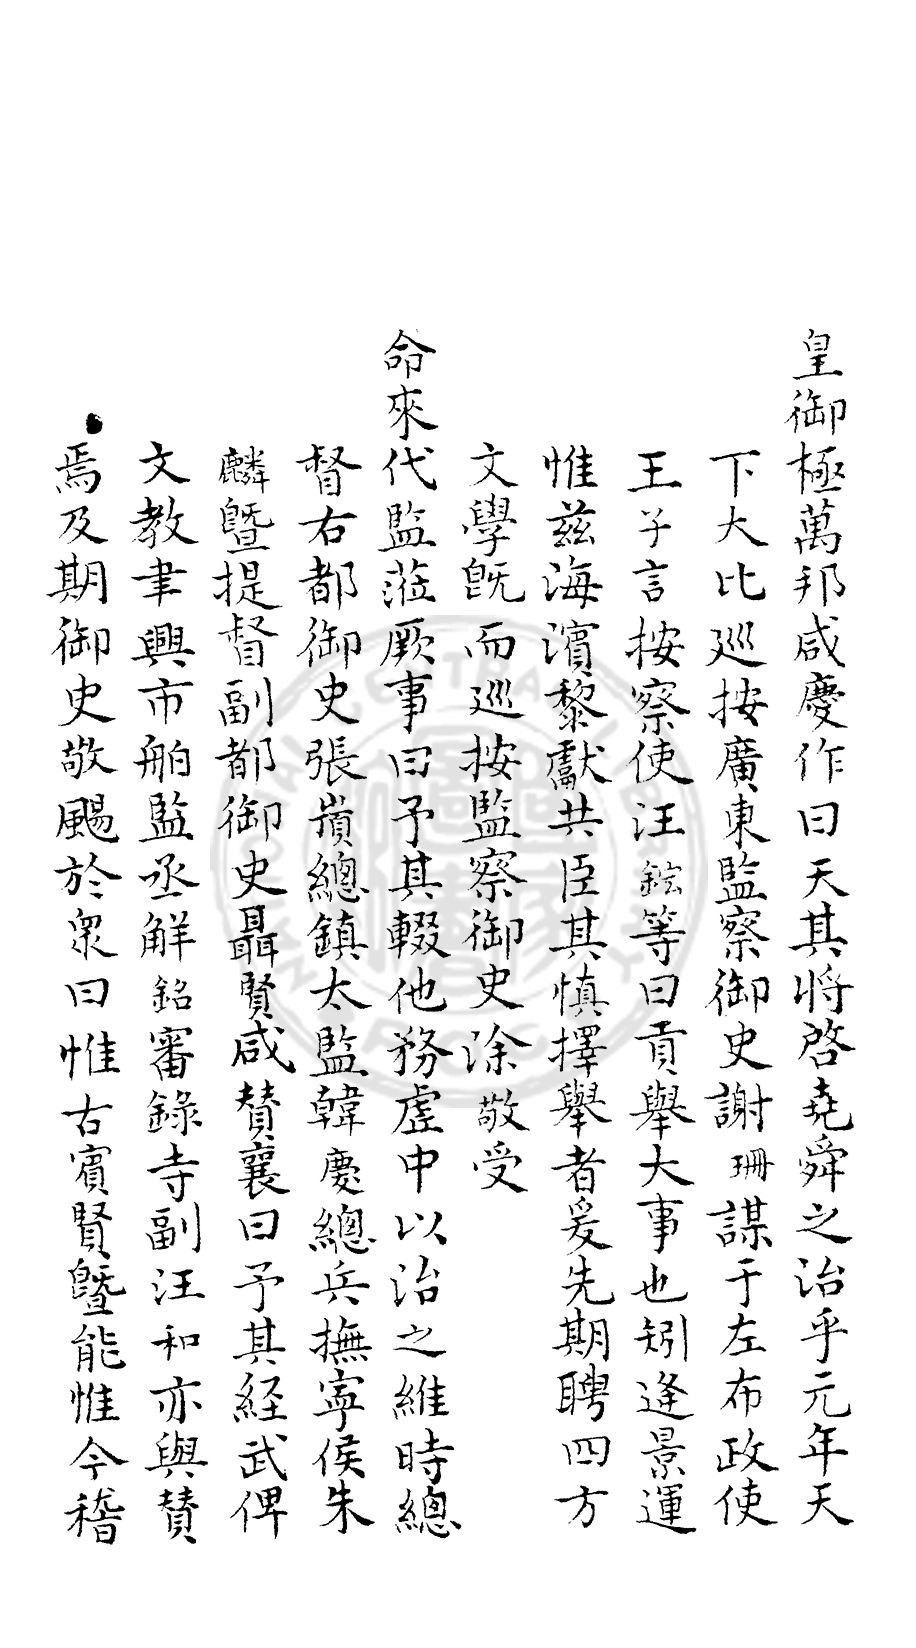 皇御極萬邦咸慶作曰天其将啓堯舜之治乎元年天
下大比巡按廣東監察御史謝珊謀于左布政使
王子言按察使汪鋐等曰貢舉大事也矧逢景運
惟兹海濱黎獻共臣其慎擇舉者爰先期聘四方
文學旣而巡按監察御史涂敬受
命來代監蒞厥事曰予其輟他務虗中以治之維時總
督右都御史張嵿總鎮太監韓慶總兵撫寧侯朱
麟曁提督副都御史聶賢咸賛襄曰予其経武俾
文教聿興市舶監丞解銘審錄寺副汪和亦與賛
焉及期御史敬颺於衆曰惟古賓賢曁能惟今稽